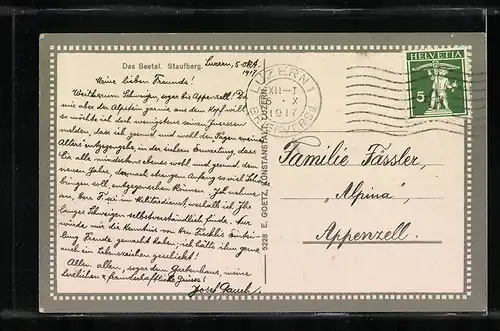 Das Seetal. Staufberg.
Luzern, 5. Okt. 1917
Meine lieben Freunde!
Weitherum Schweigen, sogar bis Appenzell! Da
mir aber der Alpstein gar nie aus dem Kopf will
so möchte ich doch wenigstens seinen Insassen
melden, dass ich gesund und wohl den Tagen meines
entgegengehe, in der sichern Erwartung, dass
Sie alle mindestens ebenso wohl und gesund den
neuen Jahren, deren Anfang so viel
bringen soll, entgegensehen können. Ich nehme
an, Herr F. sei im Militärdienst, weshalb ich Ihr
langes Schweigen selbstverständlich finde. Nur
würde mir die Kenntnis von Hrn. Fischlis
Freude gemacht haben; ich hätte ihm gern
auch ein Lebenszeichen geschickt!
Ihnen allen, sogar dem Gartenhaus, meine
herzlichen & freundschaftliche Grüsse!
Josef Gauch.
5228 E. GOETZ, KUNSTANSTALT, LUZERN
LUZERN 1
XII–1
X
1917
BRIEFVERSAND
HELVETIA
5
Familie Fässler
"Alpina",
Appenzell.